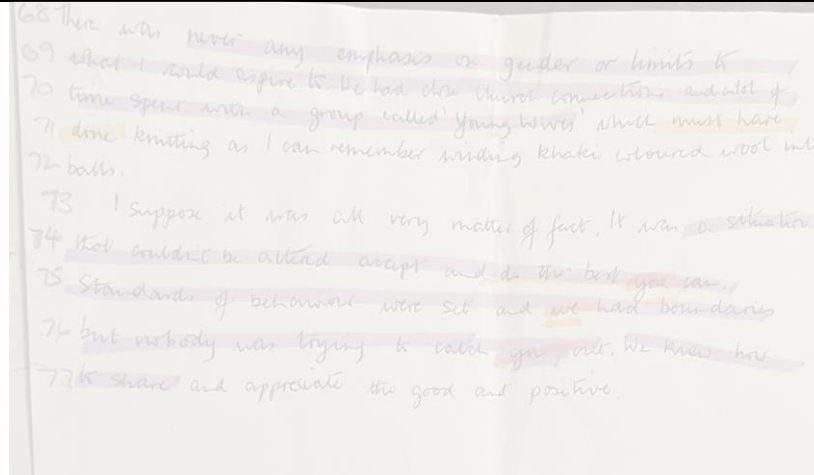 68 There was never any emphasis on gender or limits to
69 what I could aspire to. We had close church connections and alot of
70 time spent with a group called 'Young Wives' which must have
71 done knitting as I can remember winding khaki coloured wool into
72 balls.
73 I suppose it was all very matter of fact. It was a situation
74 that couldn't be altered accept and do the best you can.
75 Standards of behaviour were set and we had boundaries
76 but nobody was trying to catch you out. We knew how
77 to share and appreciate the good and positive.